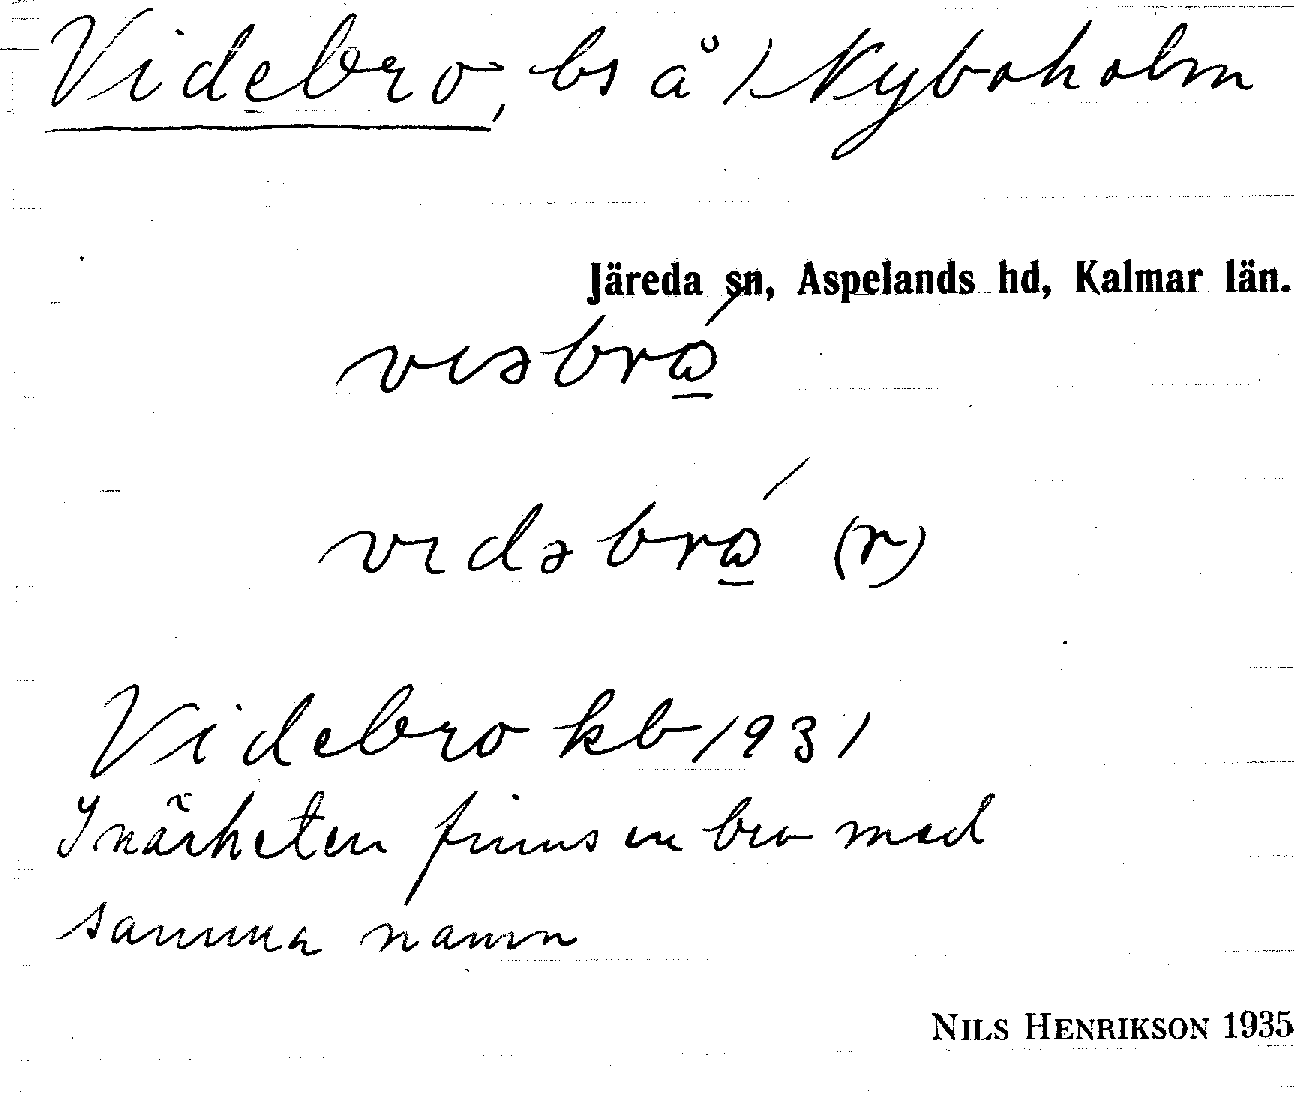 Videbro, bs å 1 Nyboholm
Järeda sn, Aspelands hd, Kalmar län.
vɩəbrɷ́
vɩdəbrɷ́ (r)
Videbro kb 1931
I närheten finns en bro med
samma namn
NILS HENRIKSON 1935